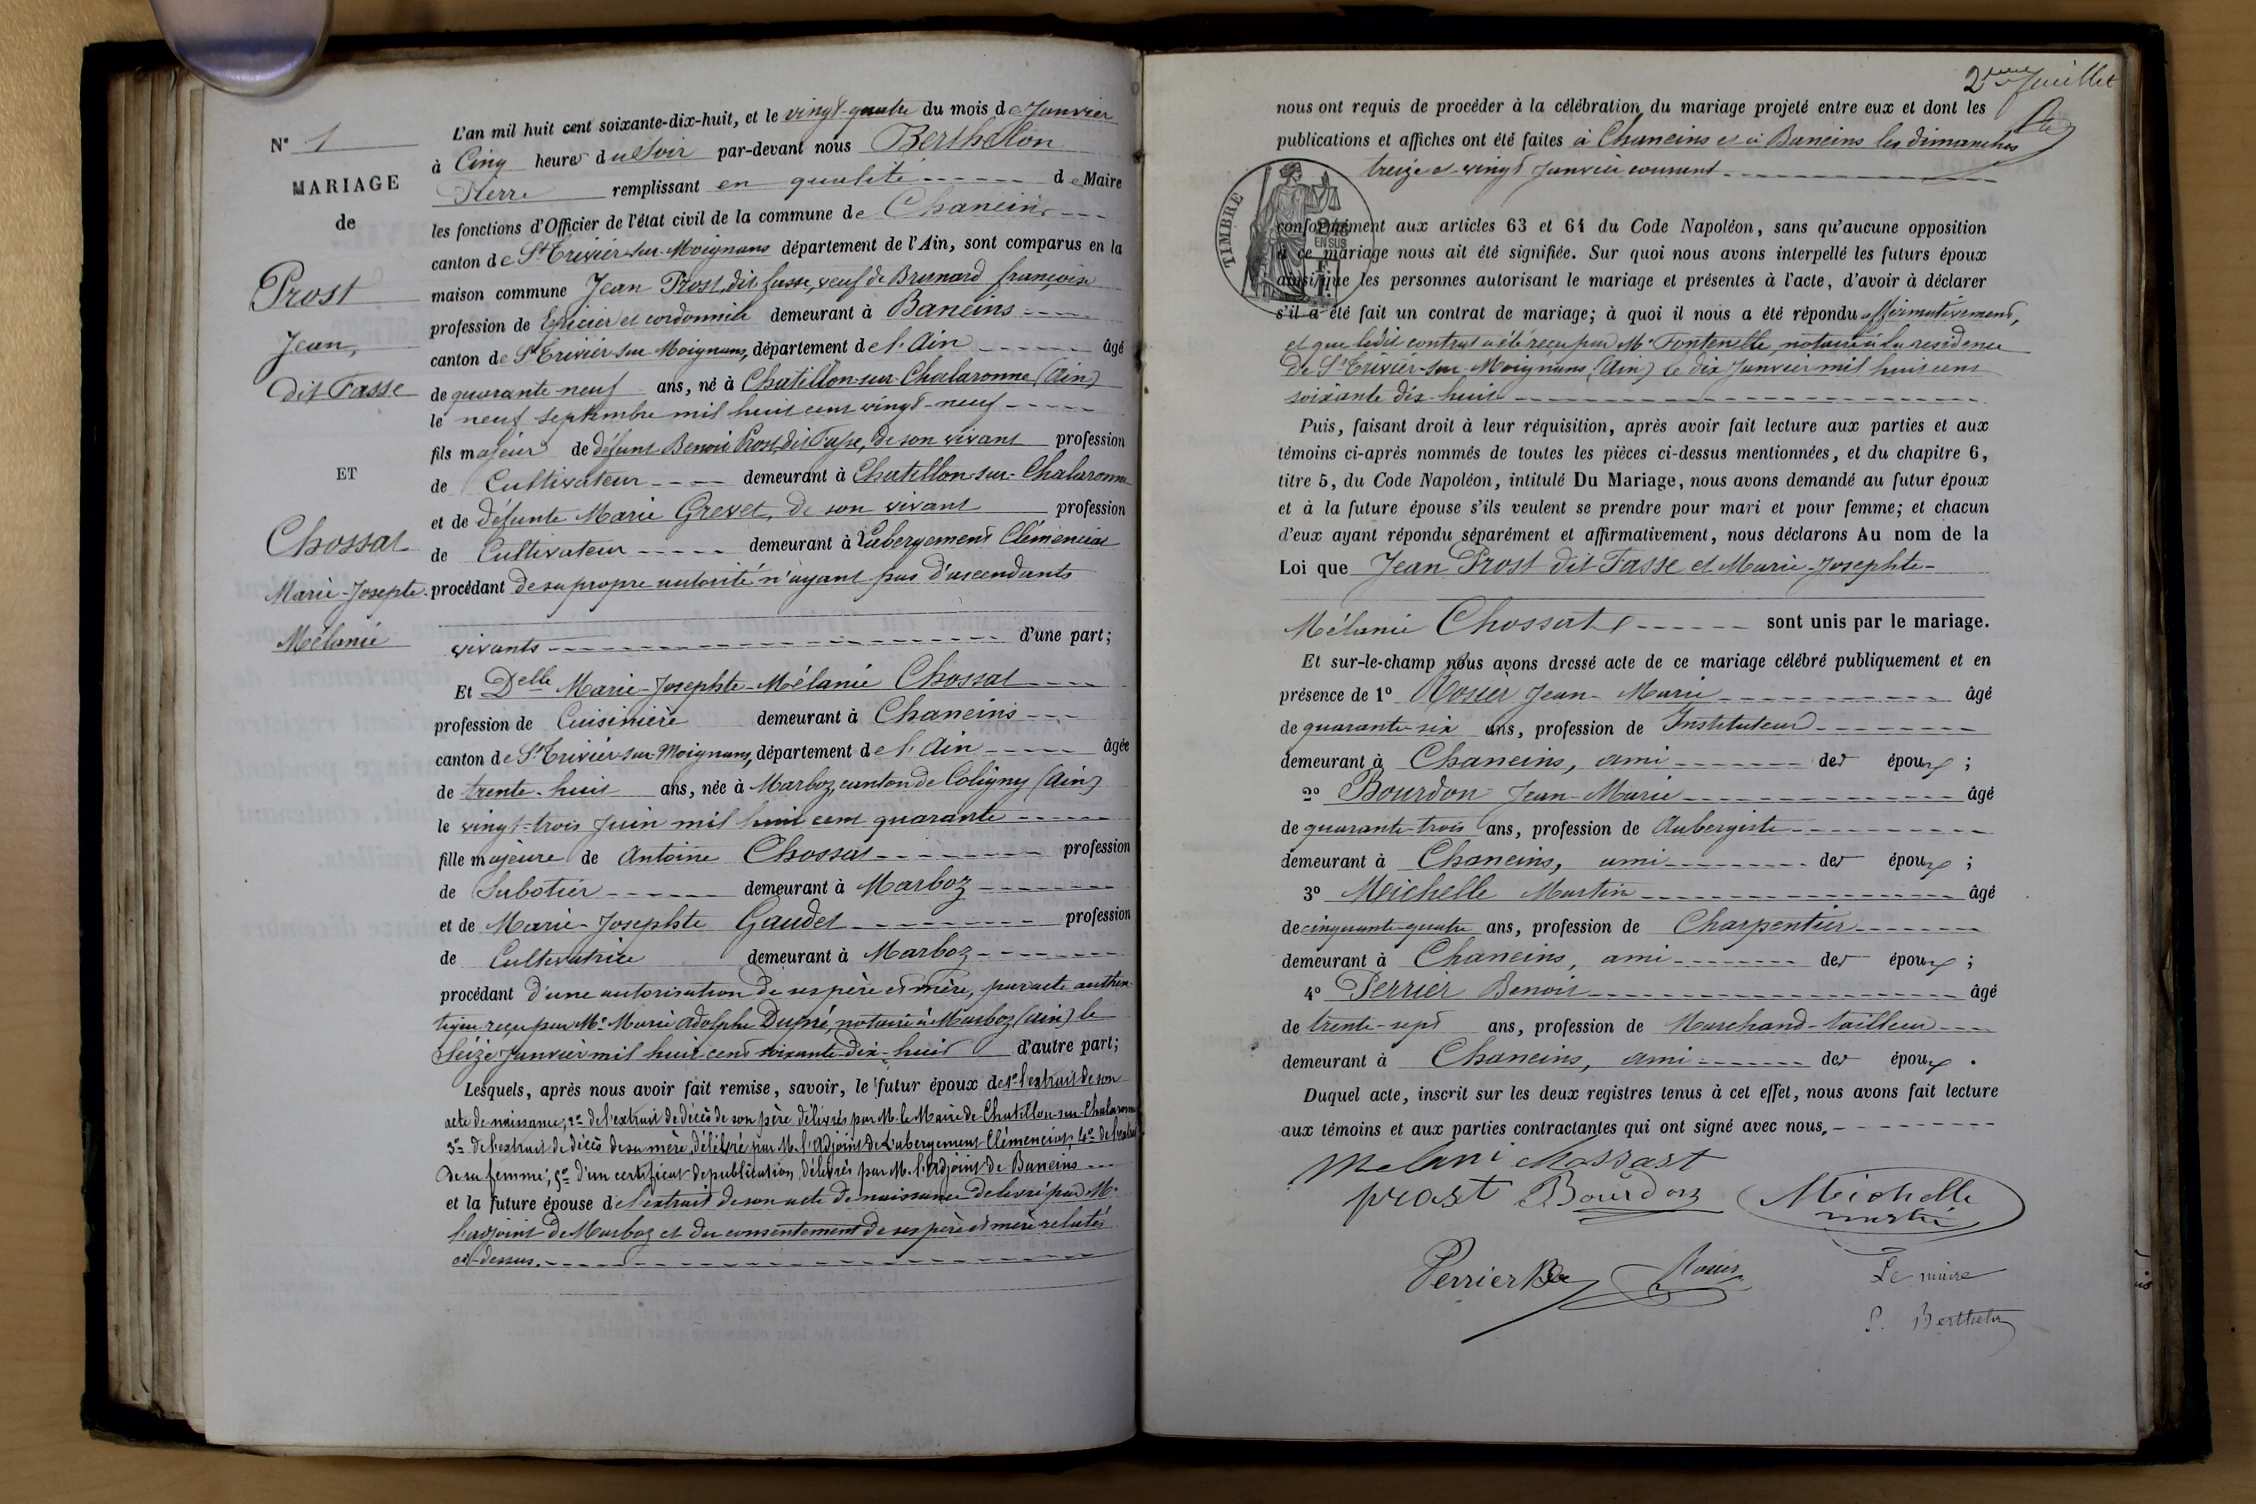 N° 1
MARIAGE
de
Prost
Jean,
dit Fasse
ET
Chossat
Marie-Josepte-
Mélanie
L'an mil huit cent soixante-dix-huit, et le vingt-quatre du mois de Janvier
à Cinq heures du Soir par-devant nous Berthelon
Pierre remplissant en qualité de Maire
les fonctions d'Officier de l'état civil de la commune de Chaneins
canton de St Trivier-sur-Moignans département de l'Ain, sont comparus en la
maison commune Jean Prost, dit fasse, veuf de Brunard françoise
profession de Epicier et cordonnier demeurant à Baneins
canton de St Trivier-sur-Moignans, département de l'Ain âgé
de quarante-neuf ans, né à Chatillon-sur-Chalaronne (Ain)
le neuf septembre mil huit cent vingt-neuf
fils majeur de défunt Benoit Prost, dit Fasse, de son vivant profession
de Cultivateur demeurant à Chatillon-sur-Chalaronne
et de défunte Marie Grevet, de son vivant profession
de Cultivateur demeurant à L'abergement Clémenciat
procédant de sa propre autorité n'ayant pas d'ascendants
vivants d'une part;
Et Delle Marie-Josephte-Mélanie Chossat
profession de Cuisinière demeurant à Chaneins
canton de St Trivier-sur-Moignans, département de l'Ain âgée
de trente-huit ans, née à Marboz, canton de Coligny (Ain)
le vingt-trois Juin mil huit cent quarante
fille majeure de Antoine Chossat profession
de Sabotier demeurant à Marboz
et de Marie-Josephte Gaudet profession
de Cultivatrice demeurant à Marboz
procédant d'une autorisation de ses père et mère, par acte authen-
tique reçu par Me Marie Adolphe Dupré, notaire à Marboz (ain) le
Seize Janvier mil huit cent soixante-dix-huit d'autre part;
Lesquels, après nous avoir fait remise, savoir, le futur époux de 1° l'extrait de son
acte de naissance; 2° de l'extrait de décès de son père délivrés par M. le Maire de Chatillon-sur-Chalaronne
3° de l'extrait de décès de sa mère, délivré par M. l'adjoint de L'abergement Clémenciat, 4° de l'extrait
de sa femme, 5° d'un certificat de publication, délivrés par M. l'adjoint de Baneins
et la future épouse de l'extrait de son acte de naissance délivré par M.
l'adjoint de Marboz et du consentement de ses père et mère relatés
ci-dessus.
2eme Juillet
nous ont requis de procéder à la célébration du mariage projeté entre eux et dont les
publications et affiches ont été faites à Chaneins et à Baneins les dimanches
treize et vingt Janvier courant
TIMBRE
EN SUS
conformément aux articles 63 et 64 du Code Napoléon, sans qu'aucune opposition
à ce mariage nous ait été signifiée. Sur quoi nous avons interpellé les futurs époux
ainsi que les personnes autorisant le mariage et présentes à l'acte, d'avoir à déclarer
s'il a été fait un contrat de mariage; à quoi il nous a été répondu affirmativement,
et que ledit contrat a été reçu par Me Fontenelle, notaire à la residence
de St Trivier-sur-Moignans, (Ain) le dix Janvier mil huit cent
soixante dix-huit
Puis, faisant droit à leur réquisition, après avoir fait lecture aux parties et aux
témoins ci-après nommés de toutes les pièces ci-dessus mentionnées, et du chapitre 6,
titre 5, du Code Napoléon, intitulé Du Mariage, nous avons demandé au futur époux
et à la future épouse s'ils veulent se prendre pour mari et pour femme; et chacun
d'eux ayant répondu séparément et affirmativement, nous déclarons Au nom de la
Loi que Jean Prost dit Fasse et Marie-Josephte-
Mélanie Chossat sont unis par le mariage.
Et sur-le-champ nous avons dressé acte de ce mariage célébré publiquement et en
présence de 1° Rosier Jean-Marie âgé
de quarante-six ans, profession de Instituteur
demeurant à Chaneins, ami des époux;
2° Bourdon Jean-Marie âgé
de quarante-trois ans, profession de Aubergiste
demeurant à Chaneins, ami des époux;
3° Meichelle Martin âgé
de cinquante-quatre ans, profession de Charpentier
demeurant à Chaneins, ami des époux;
4° Perrier Benoit âgé
de trente-sept ans, profession de Marchand-tailleur
demeurant à Chaneins, ami des époux.
Duquel acte, inscrit sur les deux registres tenus à cet effet, nous avons fait lecture
aux témoins et aux parties contractantes qui ont signé avec nous,
Melani Chossast
prost Bourdon Meichelle
martin
Perrier Be Rosier Le maire
P. Berthelon